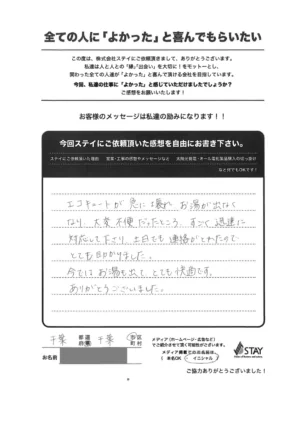 全ての人に「よかった」と喜んでもらいたい
この度は、株式会社ステイにご依頼頂きまして、ありがとうございます。
私達は人と人との「縁」「出会い」を大切に！をモットーとし、
関わった全ての人達が「よかった」と喜んで頂ける会社を目指しています。
今回、私達の仕事に「よかった」と感じていただけましたでしょうか？
ご感想をお願いいたします！
お客様のメッセージは私達の励みになります！！
今回ステイにご依頼頂いた感想を自由にお書き下さい。
ステイにご依頼頂いた理由 営業・工事の感想やメッセージなど
なと何でもOKです！
エコキュートが急に壊れ、お湯が出なく
なり、大変不便だったところ、すごく迅速に
対応して下さり、土日でも連絡がとれたので
とても助かりました。
今ではお湯も出て、とても快適です。
ありがとうございました。
千葉 都道府県 千葉 市区町村
お名前
メディア(ホームページ・広告など)
でご紹介させて頂く可能性がございます。
メディア掲載でのお名前は、
( 本名OK ・ イニシャル )
STAY
ご協力ありがとうございました！